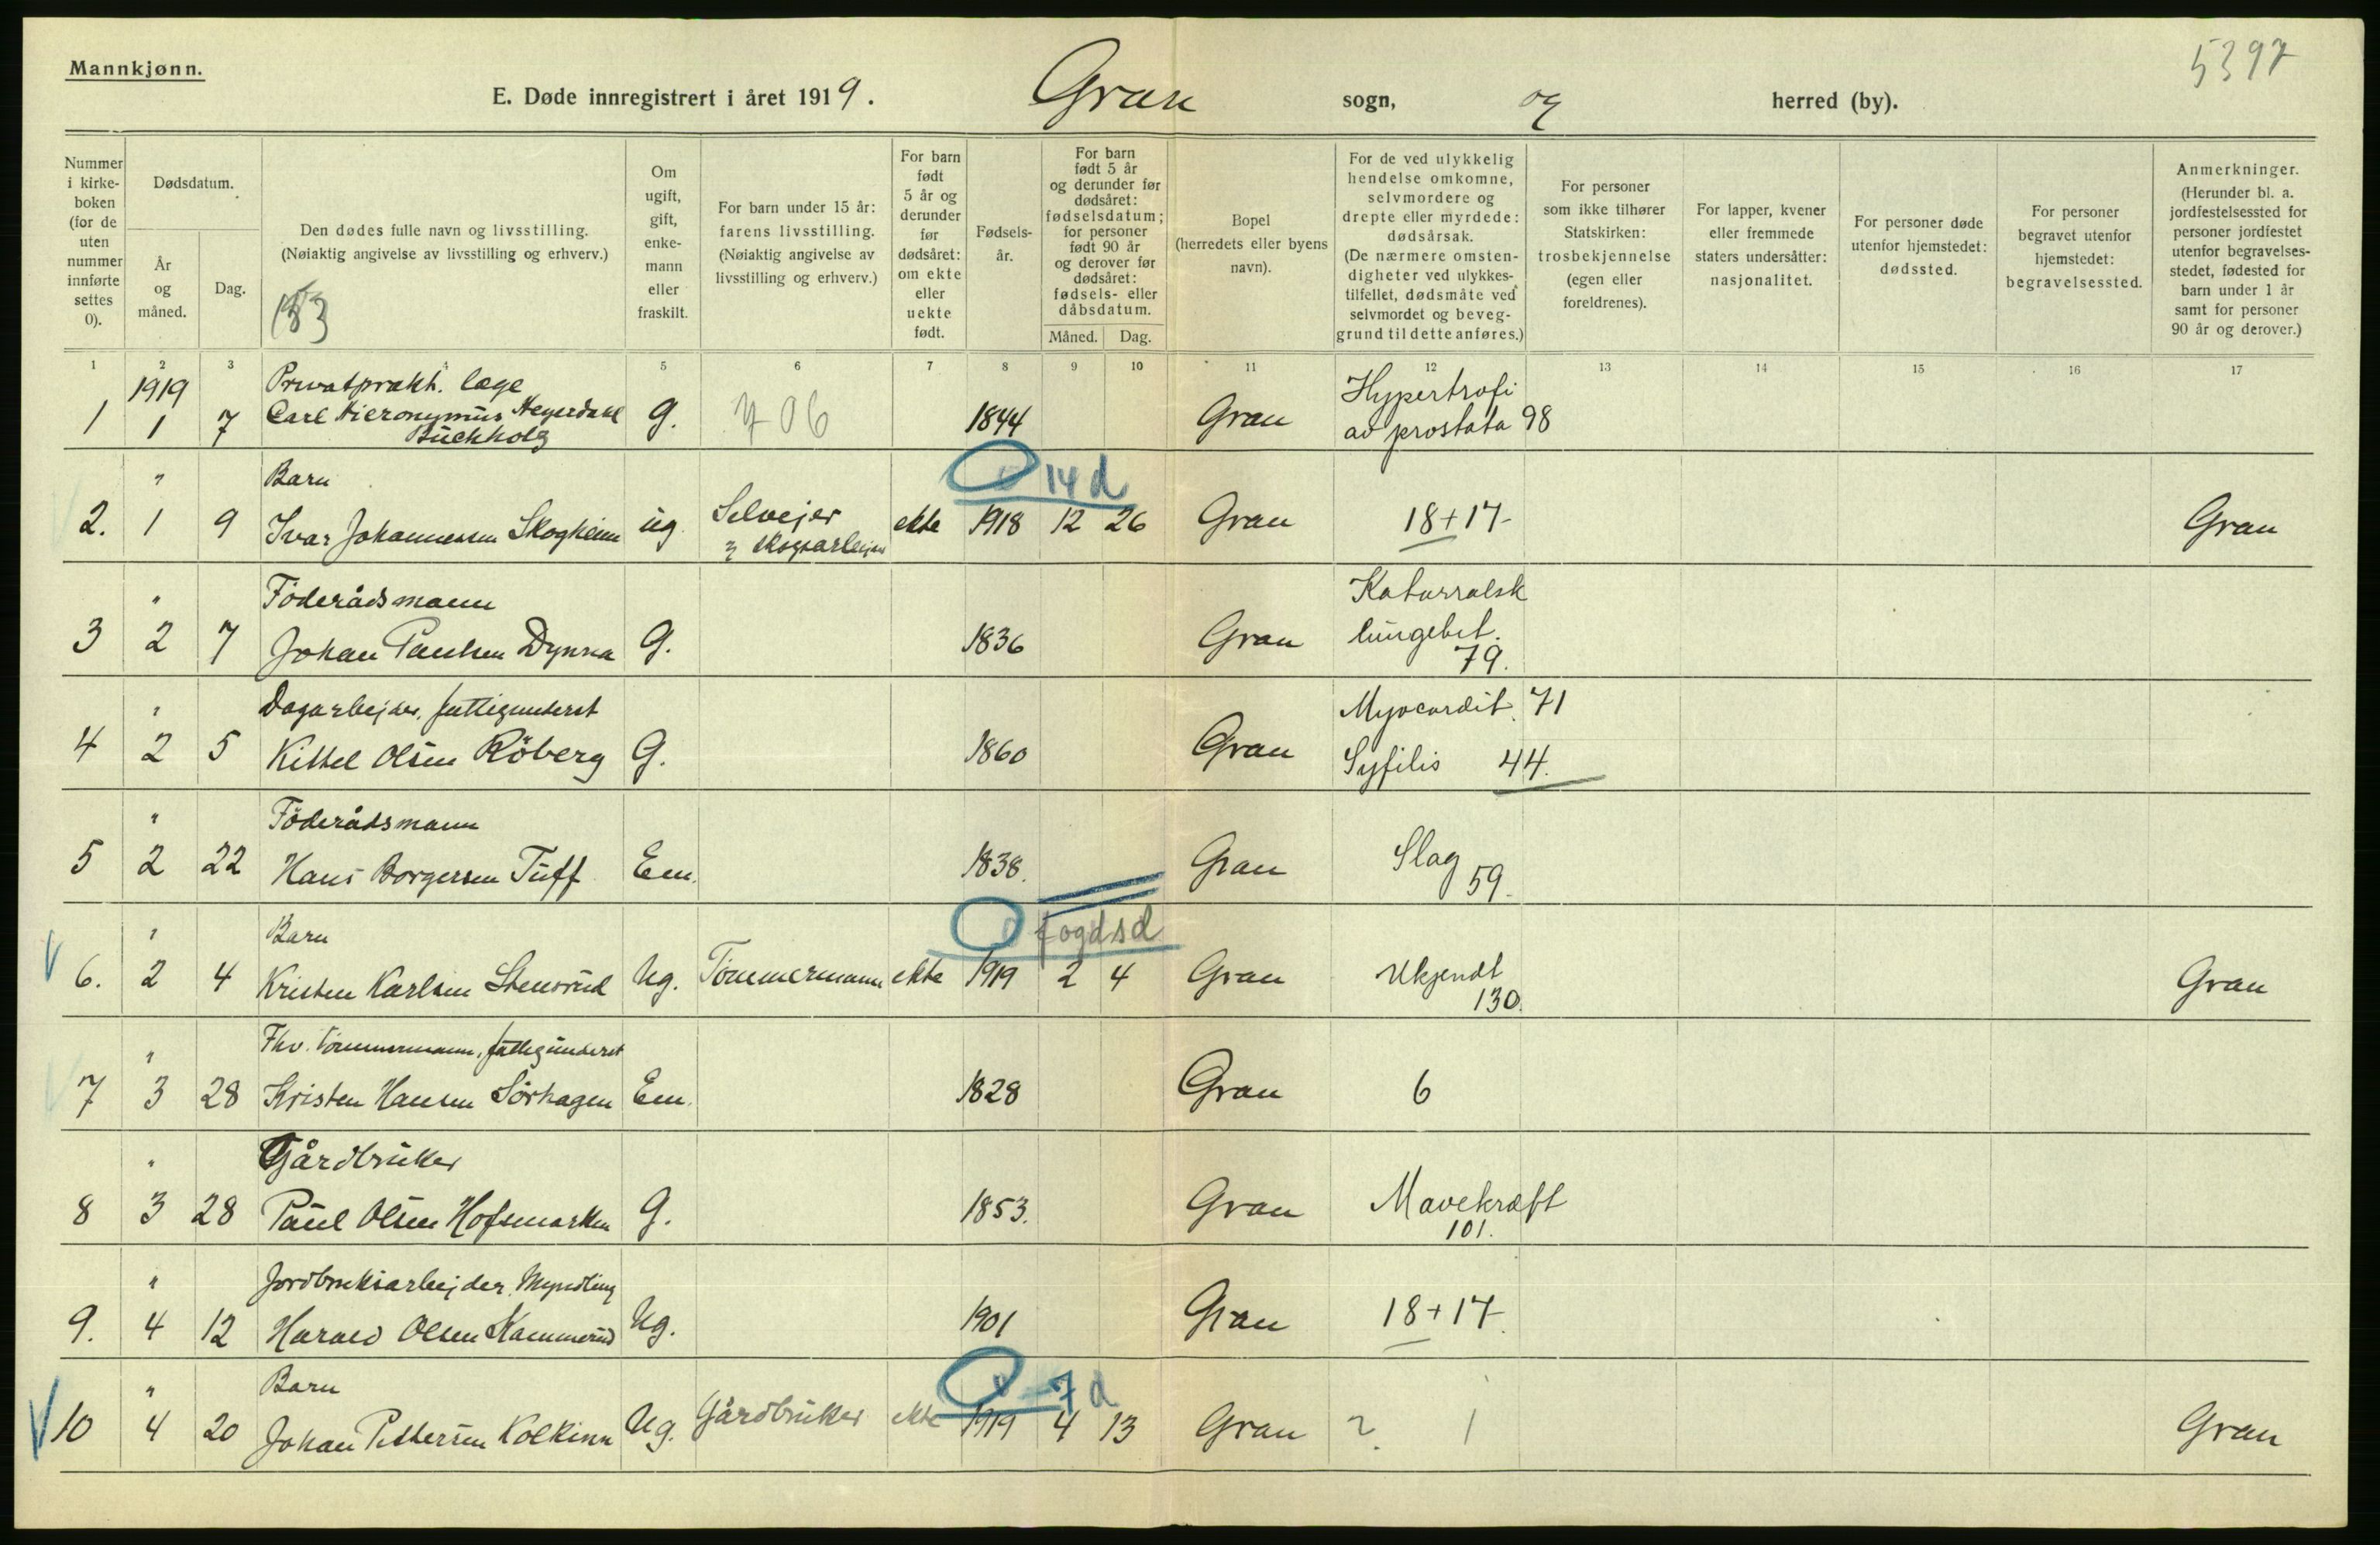 Mannkjønn.
5397
E. Døde innregistrert i året 1919. Gran sogn, og herred (by).
Nummer i kirke- boken (for de uten nummer innførte settes 0).
Dødsdatum.
År og måned.
Dag.
Den dødes fulle navn og livsstilling.
(Nøiaktig angivelse av livsstilling og erhverv.)
Om ugift, gift, enke- mann eller fraskilt.
For barn under 15 år: farens livsstilling. (Nøiaktig angivelse av livsstilling og erhverv.)
For barn født 5 år og derunder før dødsåret: om ekte eller uekte født.
Fødsels- år.
For barn født 5 år og derunder før dødsåret: fødselsdatum; for personer født 90 år og derover før dødsåret: fødsels- eller dåbsdatum.
Måned. Dag.
Bopel (herredets eller byens navn).
For de ved ulykkelig hendelse omkomne, selvmordere og drepte eller myrdede: dødsårsak. (De nærmere omsten- digheter ved ulykkes- tilfellet, dødsmåte ved selvmordet og beveg- grund til dette anføres.)
For personer som ikke tilhører Statskirken: trosbekjennelse (egen eller foreldrenes).
For lapper, kvener eller fremmede staters undersåtter: nasjonalitet.
For personer døde utenfor hjemstedet: dødssted.
For personer begravet utenfor hjemstedet: begravelsessted.
Anmerkninger. (Herunder bl. a. jordfestelsessted for personer jordfestet utenfor begravelses- stedet, fødested for barn under 1 år samt for personer 90 år og derover.)
1 2 3 4 5 6 7 8 9 10 11 12 13 14 15 16 17
1919 Privatprakt. læge Hypertrofi
1 1 7 Carl Hieronymus Heyerdahl g. 706 1844 Gran av prostata 98
Buchholz
" Barn 14 d
2. 1 9 Ivar Johannessen Skogheim ug Selvejer ekte 1918 12 26 Gran 18+17 Gran
& skogsarbejder
" Föderådsmann Katarralsk
3 2 7 Johan Paulsen Dynna G. 1836 Gran lungebet.
79.
" Dagarbejder, fattigunderst Myocardit. 71
4 2 5 Kittel Olsen Röberg G. 1860 Gran Syfilis 44.
" Föderådsmann
5 2 22 Hans Borgersen Tuff Em. 1838. Gran Slag 59.
" Barn fogdsd
6. 2 4 Kristen Karlsen Stensrud Ug. Tömmermann ekte 1919 2 4 Gran Ukjendt Gran
130.
" Fhv. tömmermann, fattigunderst
7 3 28 Kristen Hansen Sörhagen Em. 1828 Gran 6
" Gårdbruker
8 3 28 Paul Olsen Hofsmarken G. 1853. Gran Mavekræft
101.
" Jordbruksarbejder, Myndling
9. 4 12 Harald Olsen Kammerud Ug. 1901 Gran 18+17
" Barn 7 d
10 4 20 Johan Pettersen Kolkinn Ug. Gårdbruker ekte 1919 4 13 Gran ? 1 Gran